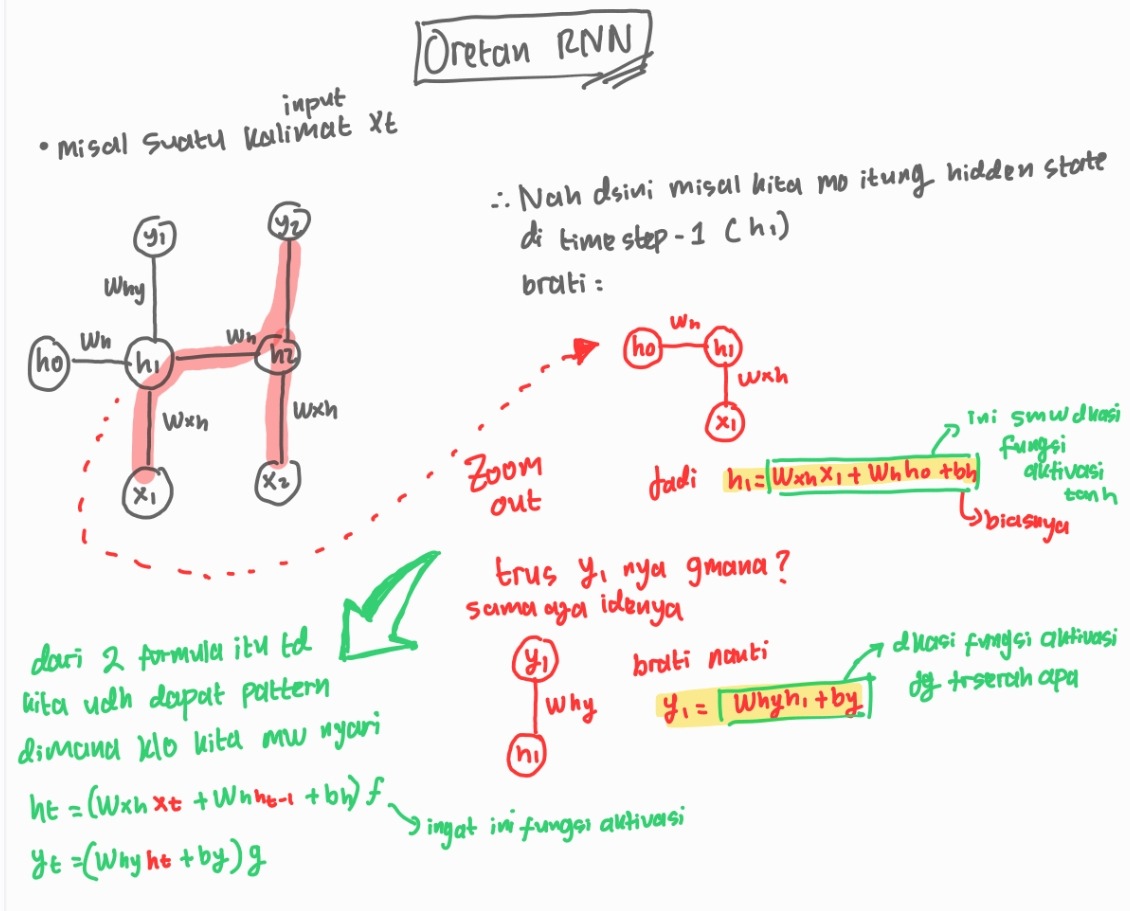 Oretan RNN
input
• misal suatu kalimat xt
∴ Nah dsini misal kita mo itung hidden state
di timestep-1 (h₁)
brati:
y₁
y₂
Why
h₀
Wh
h₁
Wh
h₂
Wxh
Wxh
x₁
x₂
Zoom
out
h₀
Wh
h₁
Wxh
x₁
Jadi h₁ = Wxh x₁ + Wh h₀ + bh
ini smw dkasi
fungsi
aktivasi
tanh
biasnya
trus y₁ nya gmana?
sama aja idenya
y₁
Why
h₁
brati nanti
y₁ = Why h₁ + by
dkasi fungsi aktivasi
jg trserah apa
dari 2 formula itu td
kita udh dapat pattern
dimana klo kita mw nyari
ht = (Wxh xt + Wh ht-1 + bh) f
ingat ini fungsi aktivasi
yt = (Why ht + by) g